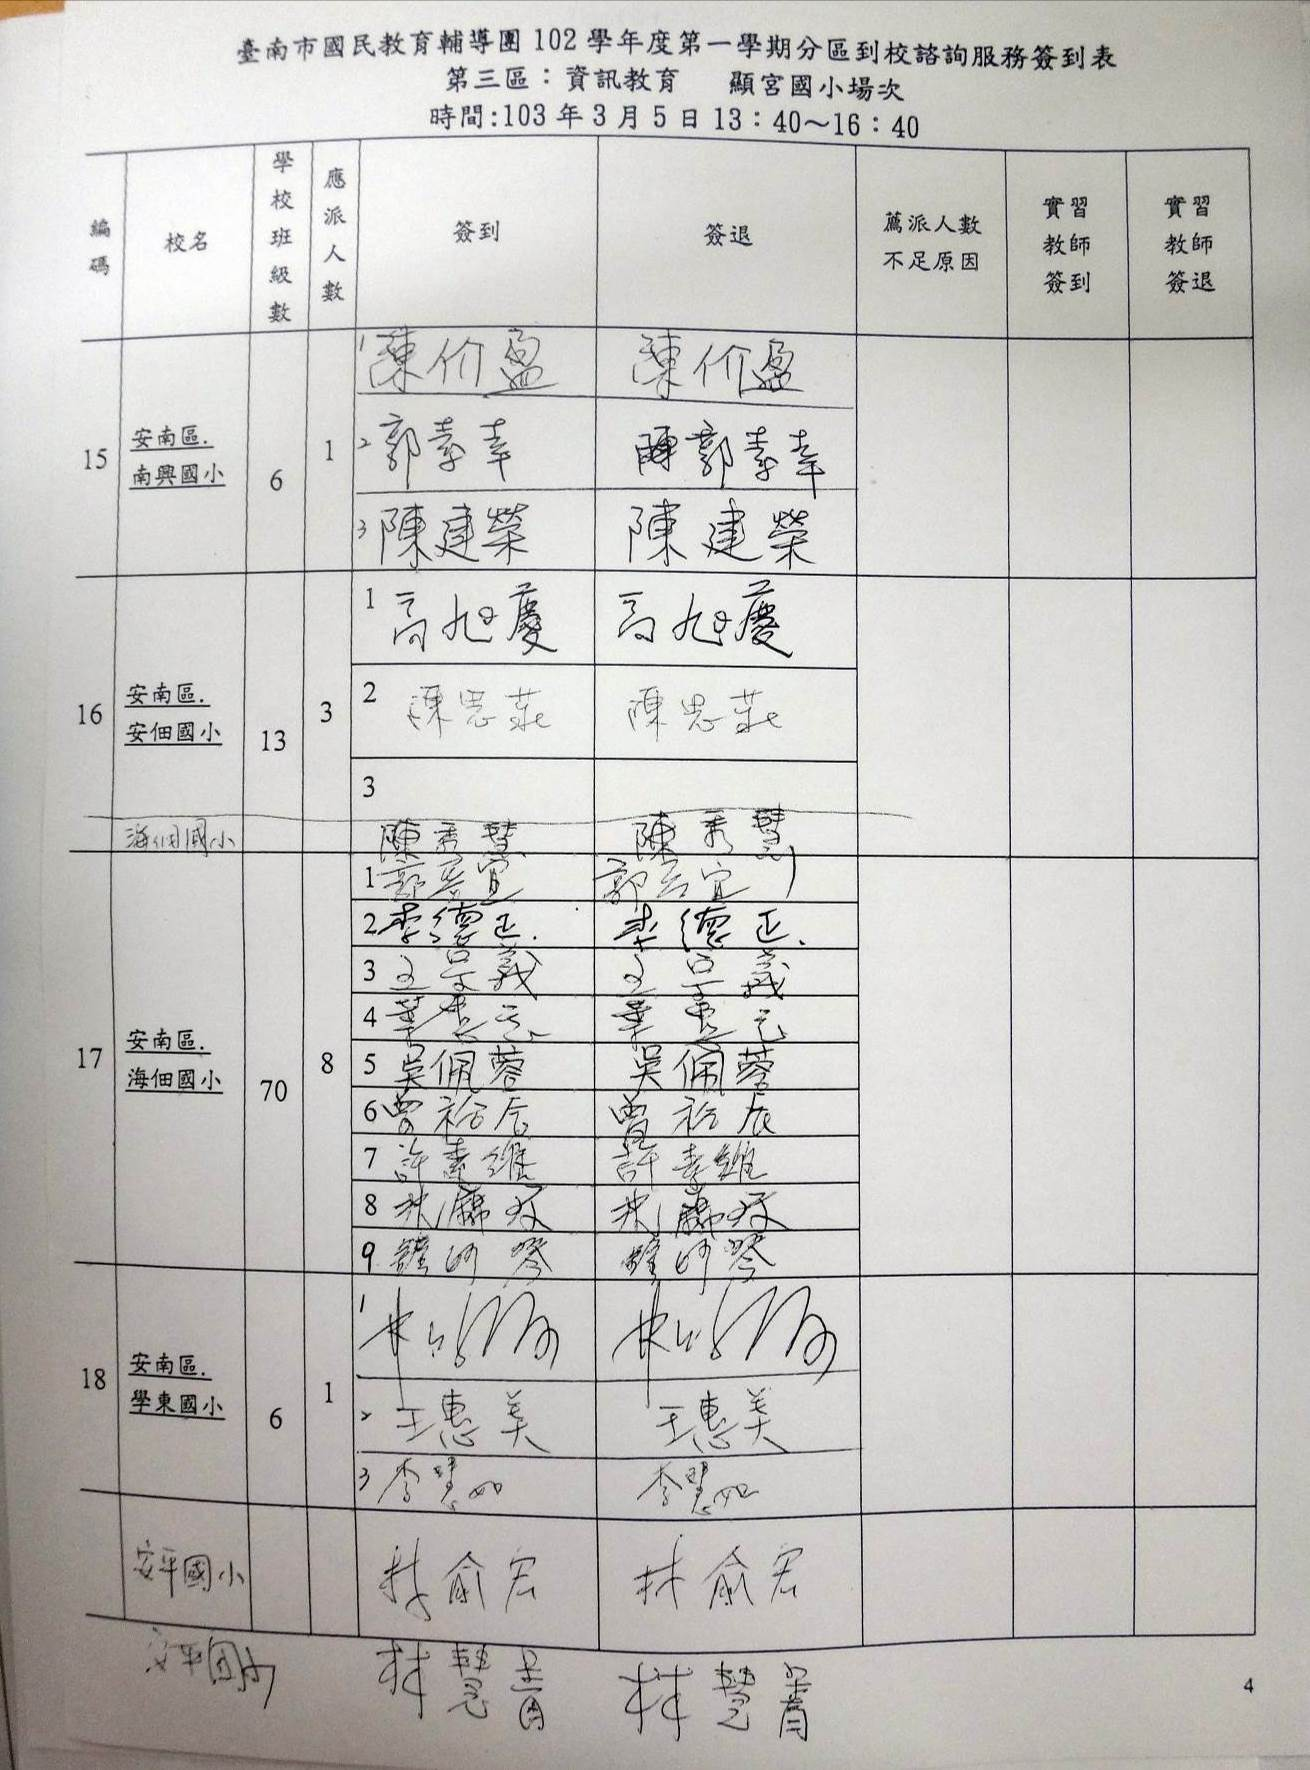 臺南市國民教育輔導團 102 學年度第一學期分區到校諮詢服務簽到表
第三區：資訊教育 顯宮國小場次
時間:103 年 3 月 5 日 13：40～16：40
編碼 校名 學校班級數 應派人數 簽到 簽退 薦派人數不足原因 實習教師簽到 實習教師簽退
15 安南區.南興國小 6 1
1 陳价盈 陳价盈
2 郭素幸 郭素幸
3 陳建榮 陳建榮
16 安南區.安佃國小 13 3
1 高旭慶 高旭慶
2 陳思莊 陳思莊
3
海佃國小 陳秀慧 陳秀慧
17 安南區.海佃國小 70 8
1 郭宜 郭宜
2 李德正. 李德正.
3 義 義
4 葉 葉
5 吳佩蓉 吳佩蓉
6 曾裕辰 曾裕辰
7 許素維 許素維
8 林 林
9 鍾 鍾
18 安南區.學東國小 6 1
1 林 林
2 王惠美 王惠美
3 李慧如 李慧如
安平國小 林俞宏 林俞宏
安平國小 林慧菁 林慧菁
4